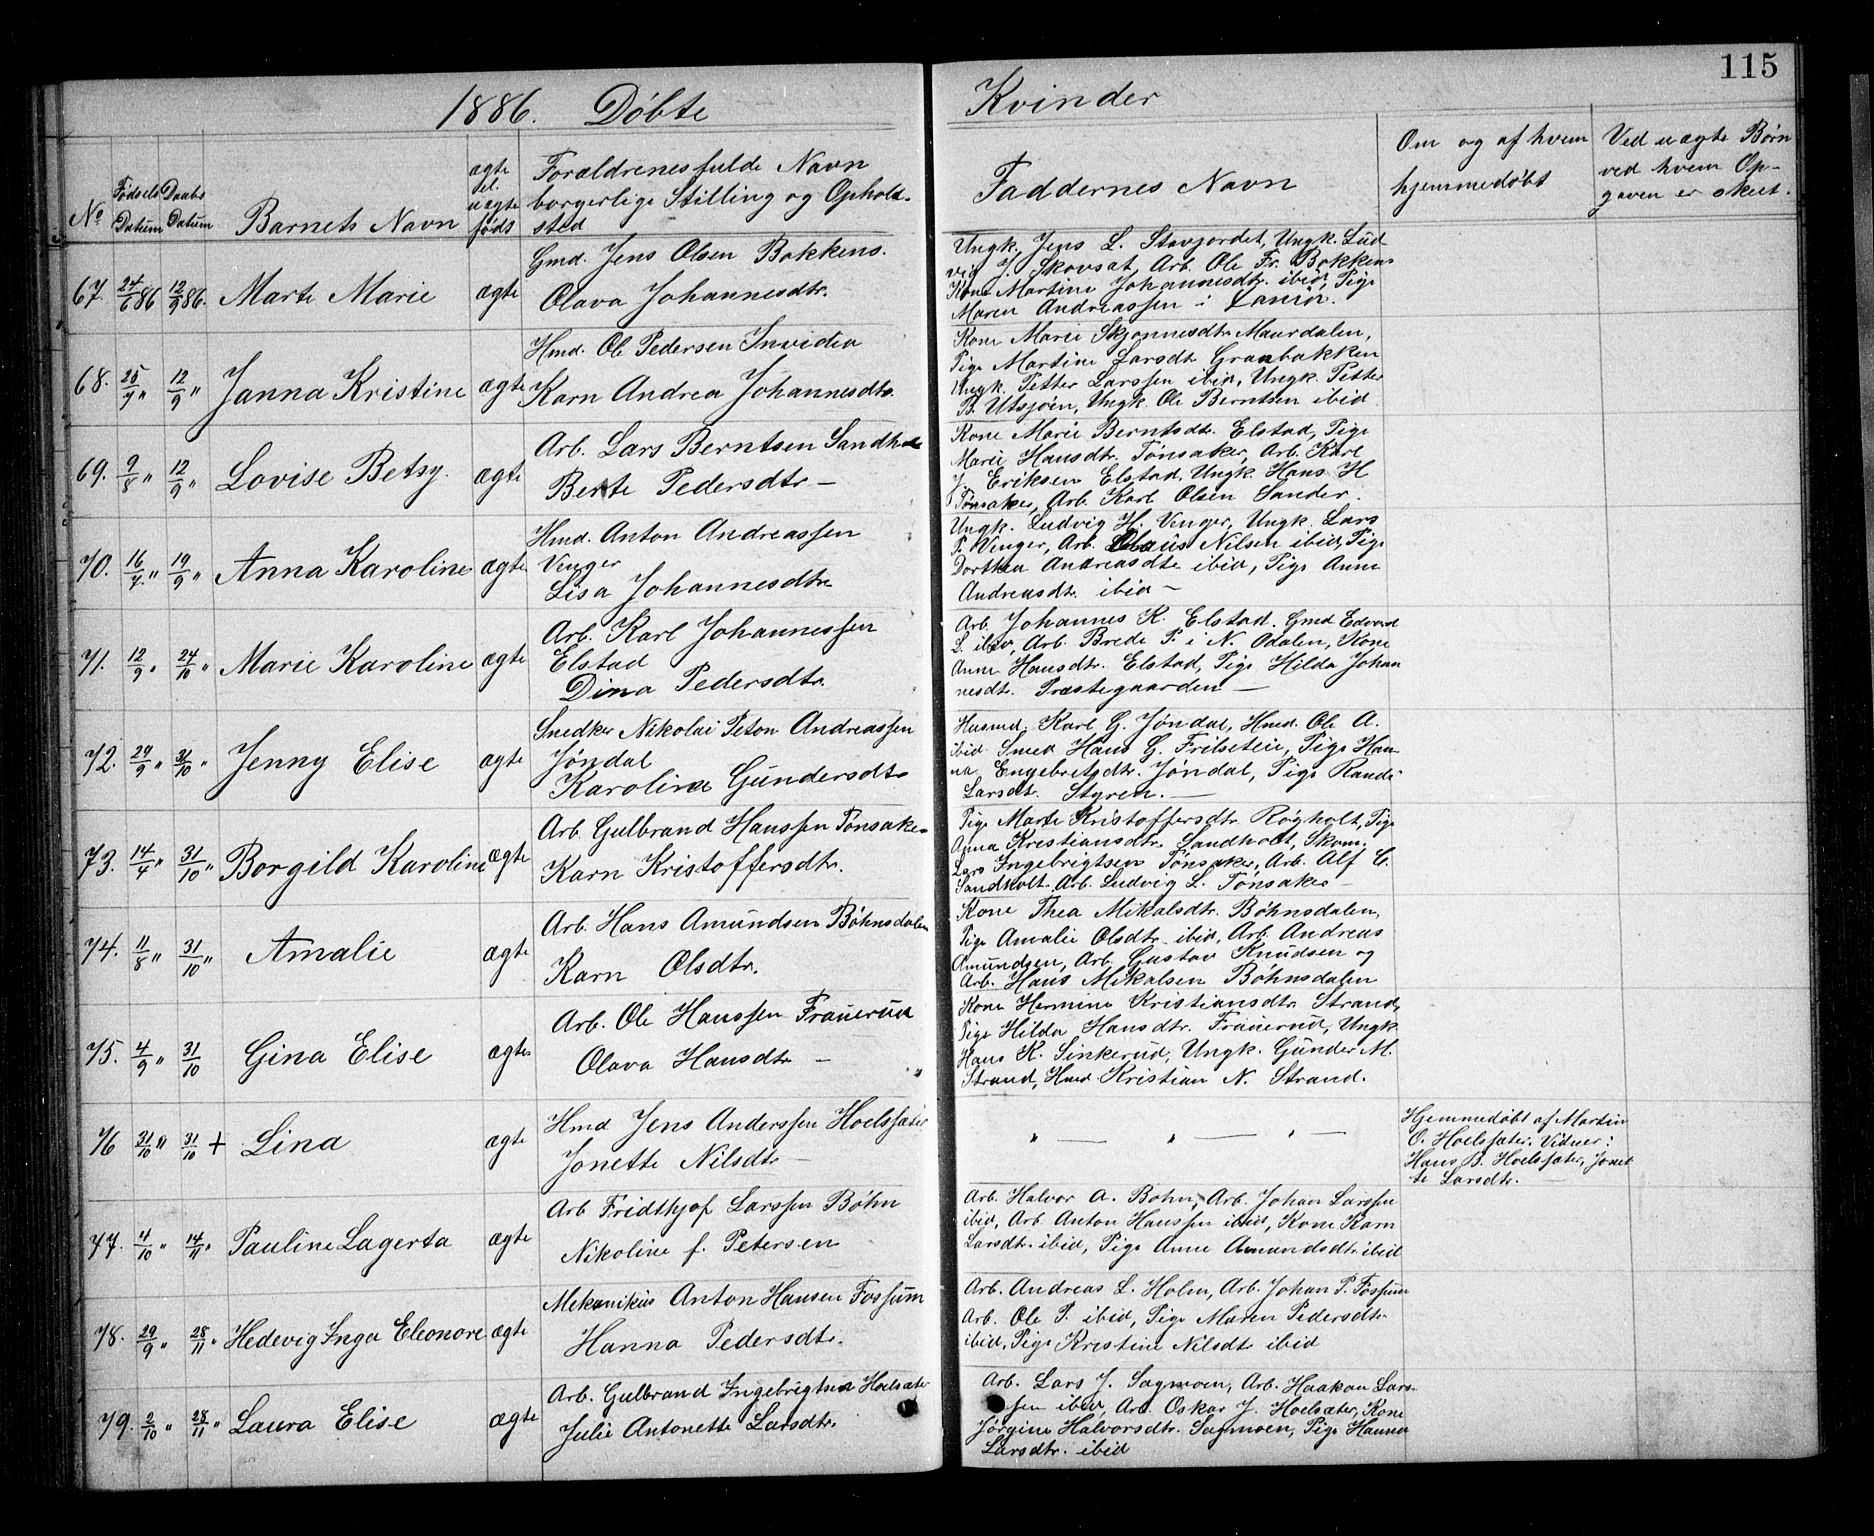 115
1886. Døbte
Kvinder
No
Fødsels Datum
Daabs Datum
Barnets Navn
ægte el. uægte føds
Forældrenes fulde Navn
borgerlige Stilling og Ophold-
sted
Faddernes Navn
Om og af hvem
hjemmedøbt
Ved uægte Børn
ved hvem Op-
gaven er skeet.
67. 24/6 86 12/9 86. Marte Marie ægte
Gmd. Jens Olsen Bakkens.
Olava Johannesdtr.
Ungk. Jens L. Stavjordet, Ungk. Lud
vig J. Skovsat, Arb. Ole Fr. Bakken
Kone Martine Johannesdtr. ibid, Pige
Maren Andreassen i
68. 25/7 " 12/9 " Janna Kristine ægte
Hmd. Ole Pedersen Invidia
Karn Andrea Johannesdtr.
Kone Marie Skjønnesdtr. Maurdalen,
Pige Martine Larsdt. Granbakken
Ungk. Petter Larssen ibid, Ungk. Petter
B. Utsjøen, Ungk. Ole Berntsen ibid
69. 9/8 " 12/9 " Lovise Betsy. ægte
Arb. Lars Berntsen Sandholt
Berte Pedersdtr —
Kone Marie Berntsdtr. Elstad, Pige
Marie Hansdtr. Tønsaker, Arb. Karl
J. Eriksen Elstad, Ungk. Hans H
Tønsaker, Arb. Karl Olsen Sander.
70. 16/7. " 19/9 " Anna Karoline ægte
Hmd. Anton Andreassen
Venger
Lisa Johannesdtr
Ungk. Ludvig H. Venger, Ungk. Lars
P. Venger, Arb. Claus Nilsen ibid, Pige
Dorthea Andreasdtr ibid, Pige Anne
Andreasdtr. ibid —
71. 12/9 " 24/10 " Marie Karoline ægte
Arb. Karl Johannessen
Elstad
Dina Pedersdtr.
Arb. Johannes K. Elstad. Gmd Edvard
L. ibid, Arb. Brede P. i N. Odalen, Kone
Anne Hansdtr. Elstad, Pige Hilda Johan
nesdtr. Præstegaarden —
72. 29/9 " 31/10 " Jenny Elise ægte
Snedker Nikolai Peton Andreassen
Jøndal
Karoline Gundersdtr
Husmd. Karl G. Jøndal, Hmd. Ole A.
ibid. Smed Hans G. Frilseteie, Pige Han
na Engebretsdtr. Jøndal, Pige Randi
Larsdt. Styren. —
73. 14/4 " 31/10 " Borgild Karoline ægte
Arb. Gulbrand Hanssen Tønsaker
Karn Kristoffersdtr.
Pige Marte Kristoffersdtr Røgholt, Pige
Anna Kristiansdtr. Sandholt, Skom.
Lars Ingebrigtsen Tønsaker, Arb. Alf C.
Sandholt. Arb. Ludvig L. Tønsaker —
74. 11/8 " 31/10 " Amalie ægte
Arb. Hans Amundsen Bøhnsdalen
Karn Olsdtr.
Kone Thea Mikalsdtr. Bøhnsdalen,
Pige Amalie Olsdtr ibid, Arb. Andreas
Amundsen, Arb. Gustav Knudsen og
Arb. Hans Mikalsen Bøhnsdalen
75. 4/9 " 31/10 Gina Elise ægte
Arb. Ole Hanssen Frauerud
Olava Hansdtr —
Kone Hermine Kristiansdtr. Strand,
Pige Hilda Hansdtr. Frauerud, Ungk.
Hans K. Sinkerud, Ungk. Gunder M.
Strand, Hmd Kristian N. Strand.
76 31/10 " 31/10 + Lina ægte
Hmd Jens Anderssen Hoelsæter
Jonette Nilsdtr —
" — " — " —
Hjemmedøbt af Martin
O. Hoelsæter. Vidner:
Hans B. Hoelsæter, Jonet
te Larsdtr. —
77. 4/10 " 14/11 " Pauline Lagerta ægte
Arb Fridthjof Larssen Bøhn
Nikoline f. Petersen
Arb. Halvor A. Bøhn, Arb. Johan Larssen
ibid, Arb. Anton Hanssen ibid, Kone Karn
Larsdtr. ibid, Pige Anne Amundsdtr. ibid
78. 29/9 " 28/11 " Hedevig Inga Eleonore ægte
Mekanikus Anton Hansen Fossum
Hanna Pedersdtr.
Arb. Andreas L. Holm, Arb. Johan P. Fossum
Arb. Ole P. ibid, Pige Maren Pedersdtr.
ibid, Pige Kristine Nilsdtr ibid
79. 2/10 " 28/11 " Laura Elise ægte
Arb. Gulbrand Ingebrigtsen Hoelsæter
Julie Antonette Larsdtr.
Arb. Lars J. Sagmoen, Arb. Haakon Lars-
sen ibid, Arb. Oskar J. Hoelsæter, Kone
Jørgine Halvorsdtr. Sagmoen, Pige Hanna
Larsdtr. ibid